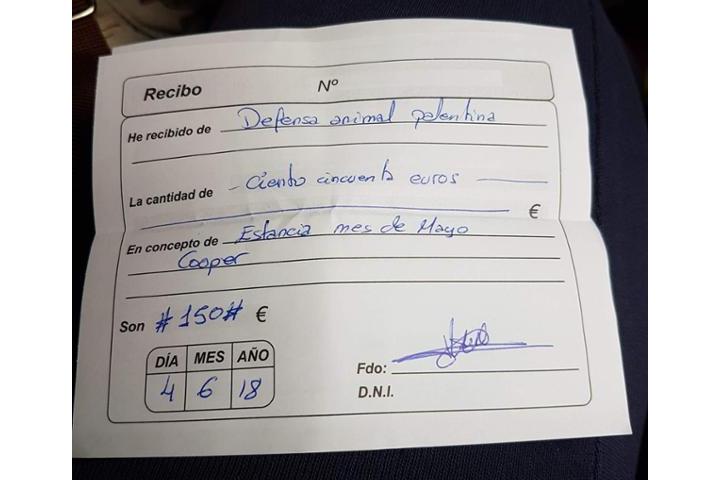 Recibo Nº
He recibido de Defensa animal palentina
La cantidad de - Ciento cincuenta euros
€
En concepto de Estancia mes de Mayo
Cooper
Son #150# €
DÍA MES AÑO
4 6 18
Fdo:
D.N.I.